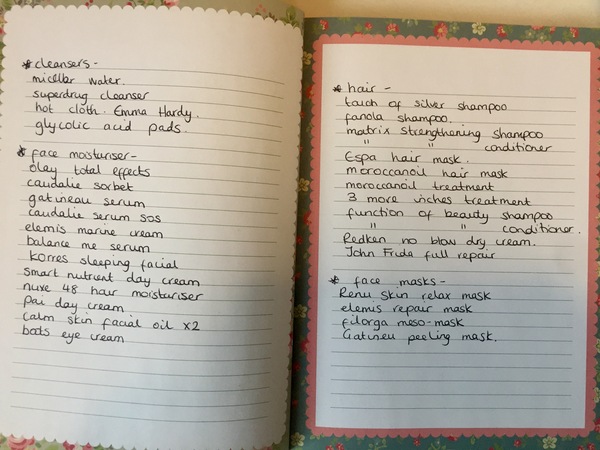 * cleansers -
micellar water.
superdrug cleanser
hot cloth. Emma Hardy.
glycolic acid pads.
* face moisturiser-
olay total effects
caudalie sorbet
gatineau serum
caudalie serum sos
elemis marine cream
balance me serum
korres sleeping facial
smart nutrient day cream
nuxe 48 hair moisturiser
pai day cream
calm skin facial oil x2
boots eye cream
* hair -
touch of silver shampoo
fanola shampoo.
matrix strengthening shampoo
" " conditioner
Espa hair mask.
moroccanoil hair mask
moroccanoil treatment
3 more inches treatment
function of beauty shampoo
" " conditioner.
Redken no blow dry cream.
John Frida full repair
* face masks -
Renu skin relax mask
elemis repair mask
filorga meso-mask
Gatineu peeling mask.